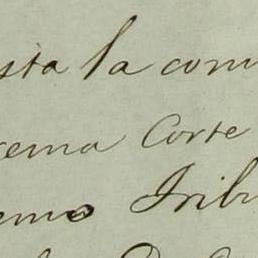 sta la com
rema Corte
emo Tribu